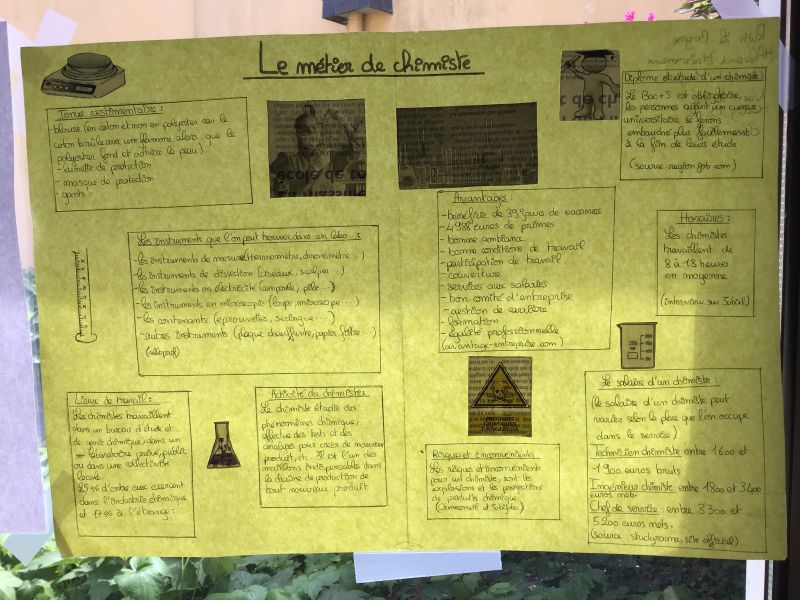 Le métier de chimiste
Tenue vestimentaire :
- blouse (en coton et non en polyester car le
coton brûle avec une flamme alors que le
polyester fond et adhère la peau).
- lunette de protection
- masque de protection
- gants
Diplome et étude d'un chimiste
Le Bac+5 est obligatoire,
les personnes ayant un cursus
universitaire se ferons
embauché plus facilement
à la fin de leurs étude
Les instruments que l'on peut trouver dans un labo... :
- les instruments de mesure (thermomètre, chronomètre...)
- les instruments de dissection (ciseaux, scalper...)
- les instruments en électricité (ampoule, pile...)
- les instruments en microscopie (loupe, microscope...)
- les contenants (éprouvettes, seringue...)
- autres instruments (plaque chauffante, papier filtre...)
Avantages :
- bénéficie de 39 jours de vacances
- 4988 euros de primes
- bonne ambiance
- bonne conditions de travail
- participation de travail
- couverture
- services aux salariés
- bon comité d'entreprise
- gestion de carrière
- formation
- égalité professionnelle
(avantage-entreprise.com)
Horaires :
Les chimistes
travaillent de
8 à 18 heures
en moyenne
Lieux de travail :
Les chimistes travaillent
dans un bureau d'étude et
de génie chimique, dans un
laboratoire privée, public
ou dans une collectivité
locale.
dans l'industrie chimique
et 17% à l'étranger.
Activité du chimiste
Le chimiste étudie des
phénomènes chimique,
effectue des tests et des
analyses pour créer de nouveau
produit, etc. Il est l'un des
maillons indispensables dans
la chaîne de production de
tout nouveau produit
PRODUITS
CHIMIQUES
DANGEREUX
Risques et inconvénients
Les risques et inconvénients
pour un chimiste, sont les
explosions et les projections
de produits chimique.
250
ml
200
150
100
50
Le salaire d'un chimiste :
(le salaire d'un chimiste peut
varier selon la place que l'on occupe
dans le service)
Technicien chimiste : entre 1600 et
1900 euros bruts
Ingénieur chimiste : entre 1800 et 3400
euros nets.
Chef de service : entre 3300 et
5200 euros nets.
(source studyrama, site officiel)